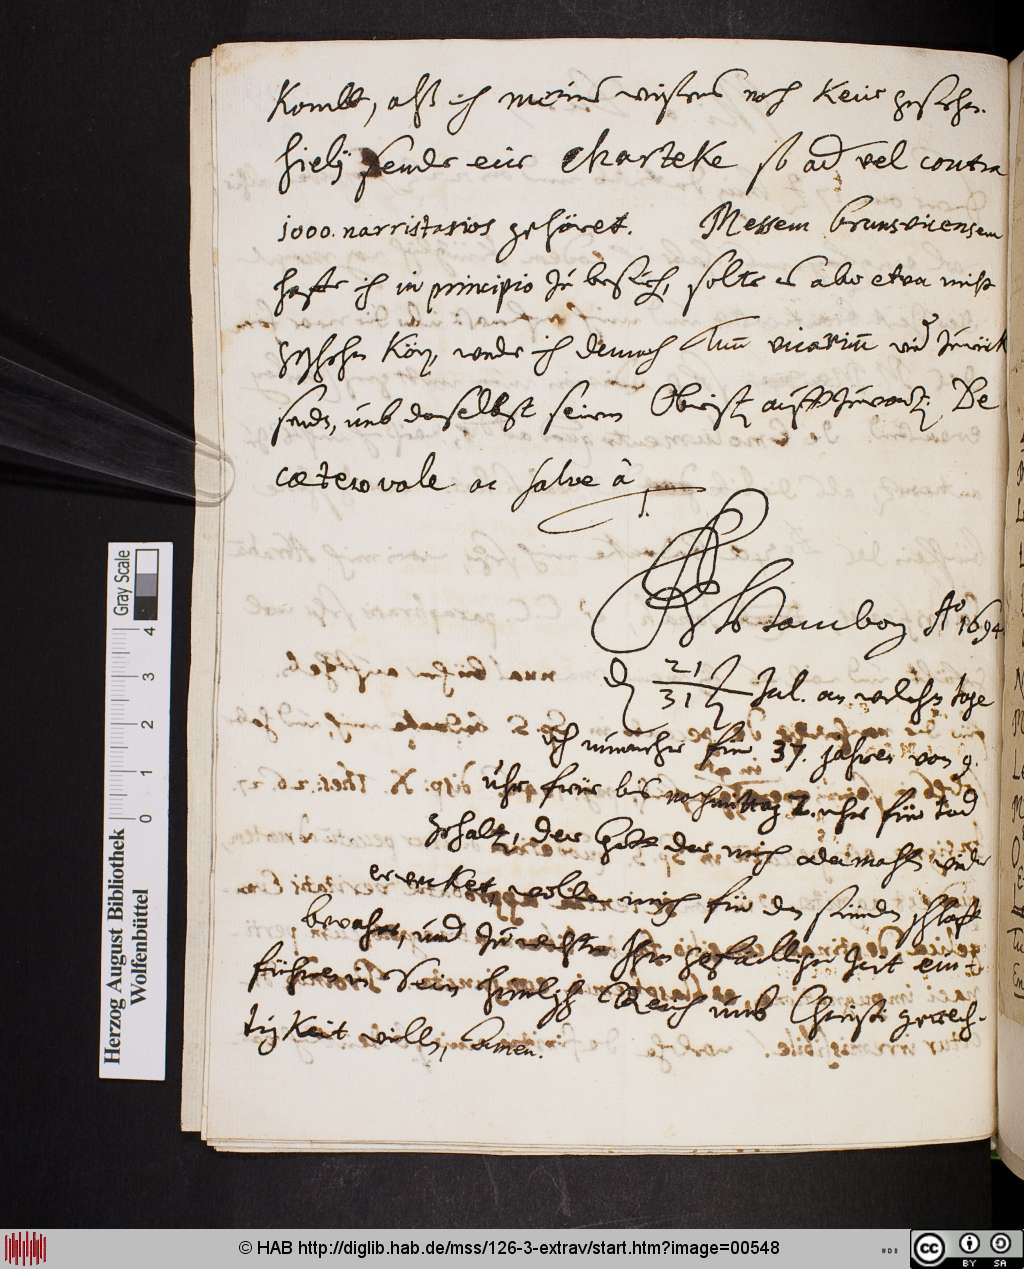 Kombt, alß ich meines wißens noch keine gesehen.
hiebej sende eine Charteke so ad vel contra
1000. narristarios gehöret. Messem brunsvicensem
hoffe ich in principio zu besuch, solte es aber etwa nicht
geschehen Kön, werde ich dennoch vicariu und zurück
send, umb daselbst seinen aufzuwart. De
cætero vale ac salve à
T.
Stambog Ao 1694
d 21/31 Jul. an welchen tage
ich nunmehr für 37. jahren von 9.
Uhr früe bis nachmittag 2. uhr für tod
gehalt, der Gott der mich odermahlß wieder
erwecket, wolle mich für den sünden schlaff
bewahren, und zu rechter Ihm gefälliger Zeit ein-
führen in Sein himlisch Reich umb Christi gerech-
tigkeit willen, Amen.
Gray Scale
0 1 2 3 4
Herzog August Bibliothek
Wolfenbüttel
© HAB http://diglib.hab.de/mss/126-3-extrav/start.htm?image=00548
cc BY SA